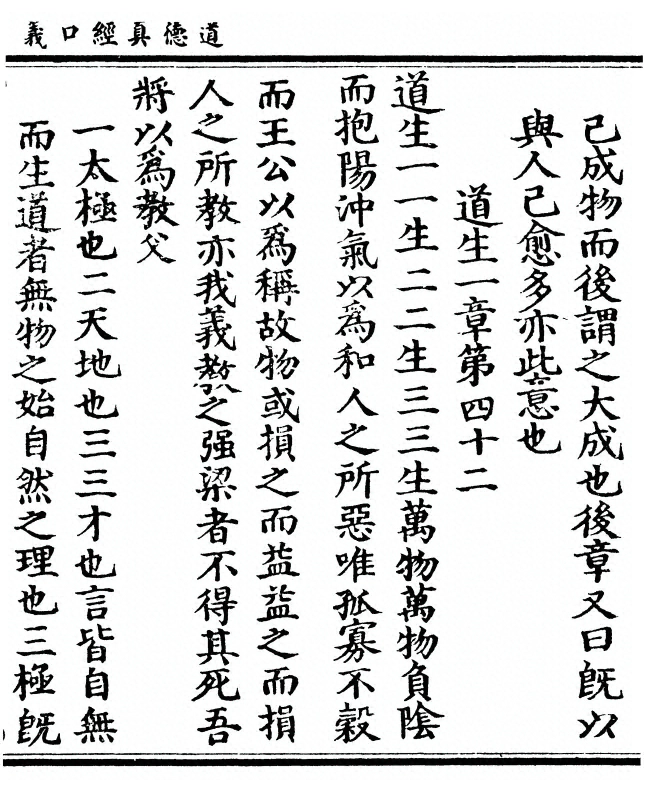 道德真經口義
己成物而後謂之大成也後章又曰既以
與人己愈多亦此意也
道生一章第四十二
道生一一生二二生三三生萬物萬物負陰
而抱陽沖氣以爲和人之所惡唯孤寡不穀
而王公以爲稱故物或損之而益益之而損
人之所教亦我義教之强梁者不得其死吾
將以爲教父
一太極也二天地也三三才也言皆自無
而生道者無物之始自然之理也三極既